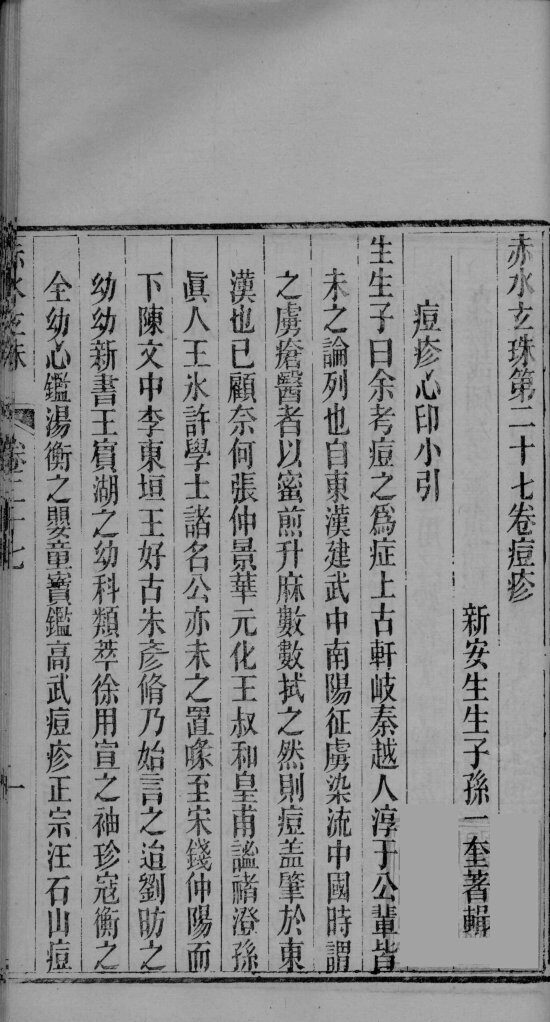 赤水玄珠第二十七卷痘疹
新安生生子孫一奎著輯
痘疹心印小引
生生子曰余考痘之爲症上古軒岐秦越人淳于公輩皆
未之論列也自東漢建武中南陽征虜染流中國時謂
之虜瘡醫者以蜜煎升麻數數拭之然則痘盖肇於東
漢也已顧奈何張仲景華元化王叔和皇甫謐禇澄孫
眞人王氷許學士諸名公亦未之置喙至宋錢仲陽而
下陳文中李東垣王好古朱彥脩乃始言之迨劉昉之
幼幼新書王賔湖之幼科類萃徐用宣之袖珍寇衡之
全幼心鑑湯衡之嬰童寶鑑高武痘疹正宗汪石山痘
赤水玄珠 卷二十七 一